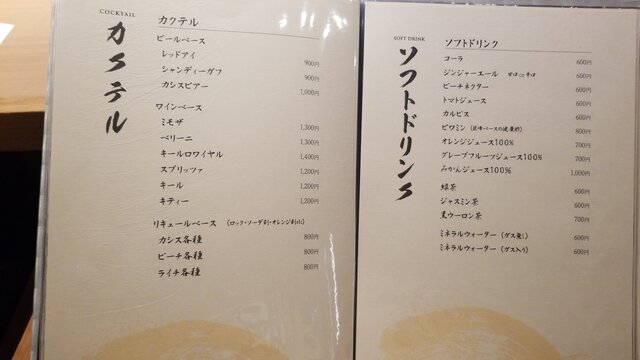 COCKTAIL
カクテル
カクテル
ビールベース
レッドアイ 900円
シャンディーガフ 900円
カシスビアー 1,000円
ワインベース
ミモザ 1,300円
ベリーニ 1,300円
キールロワイヤル 1,400円
スプリッツァ 1,200円
キール 1,200円
キティー 1,200円
リキュールベース (ロック・ソーダ割・オレンジ割etc)
カシス各種 800円
ピーチ各種 800円
ライチ各種 800円
SOFT DRINK
ソフトドリンク
ソフトドリンク
コーラ 600円
ジンジャーエール 甘口or辛口 600円
ピーチネクター 600円
トマトジュース 600円
カルピス 600円
ビワミン 800円
オレンジジュース100% 700円
グレープフルーツジュース100% 700円
みかんジュース100% 1,000円
緑茶 600円
ジャスミン茶 600円
黒ウーロン茶 700円
ミネラルウォーター (ガス無し) 600円
ミネラルウォーター (ガス入り) 600円